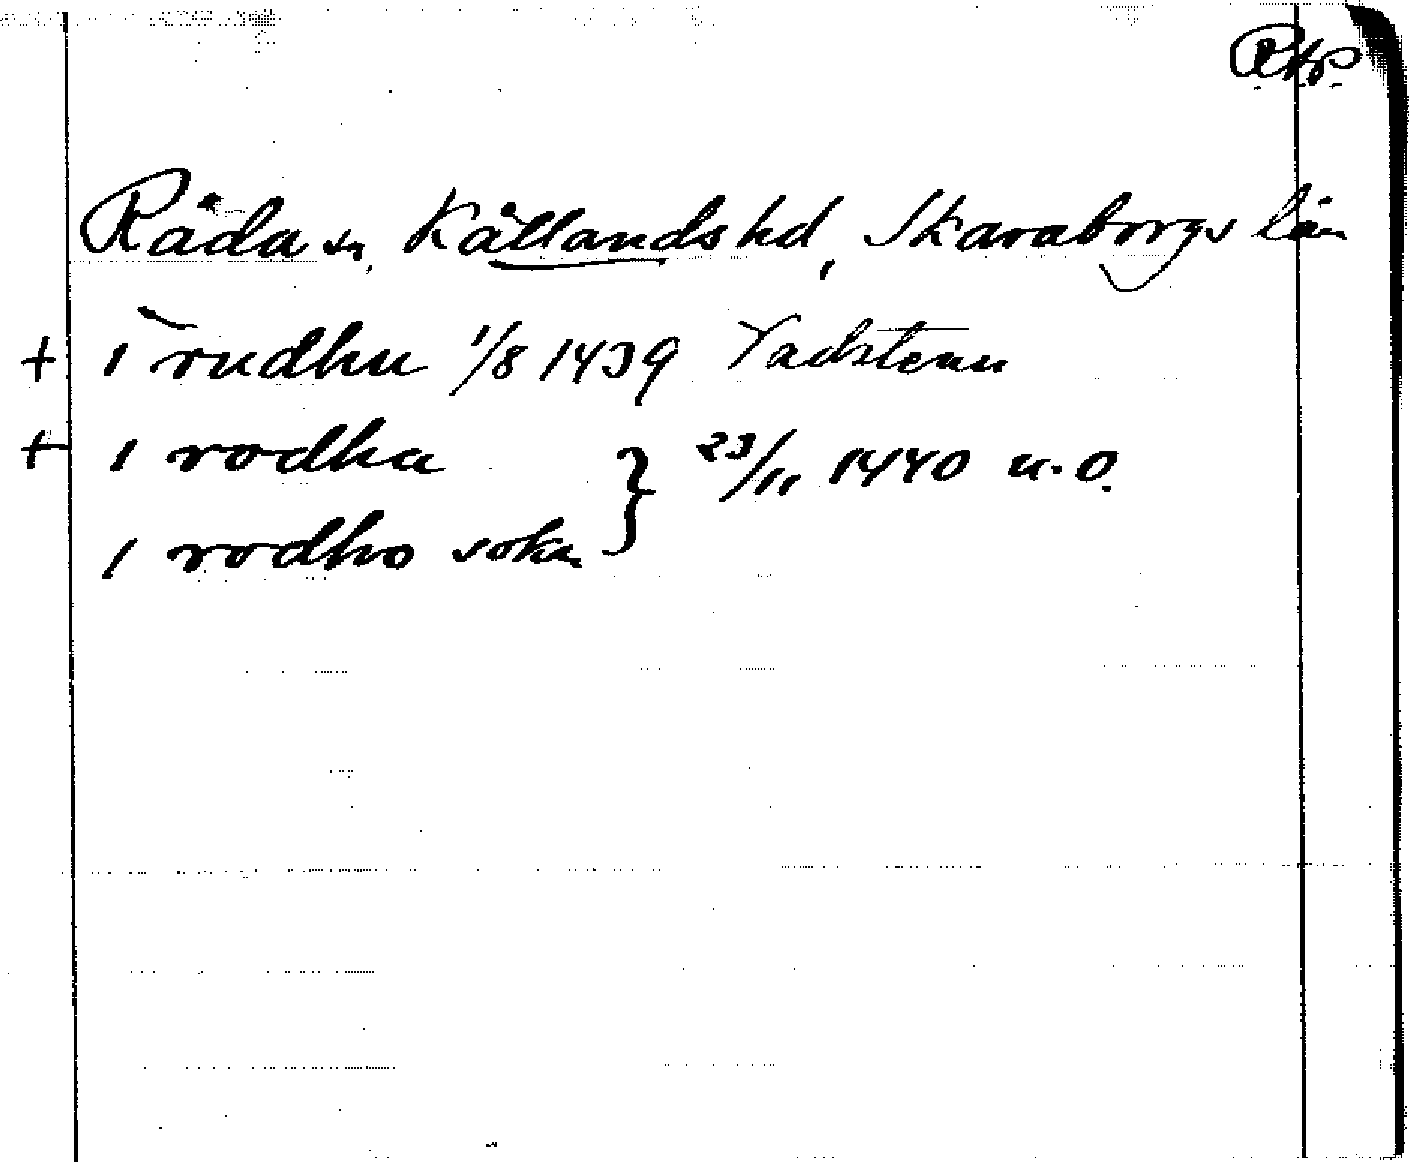 RAP.
Råda sn, Kållands hd, Skaraborgs län
+ i rudhu 1/8 1439 Vadstenu
+ i rodha } 23/11 1440 u.o.
i rodho sokn